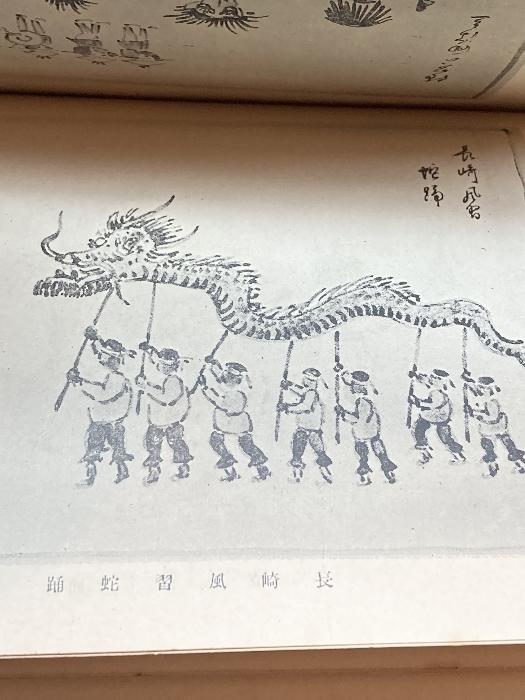 長崎風習
蛇踊
踊蛇習風崎長